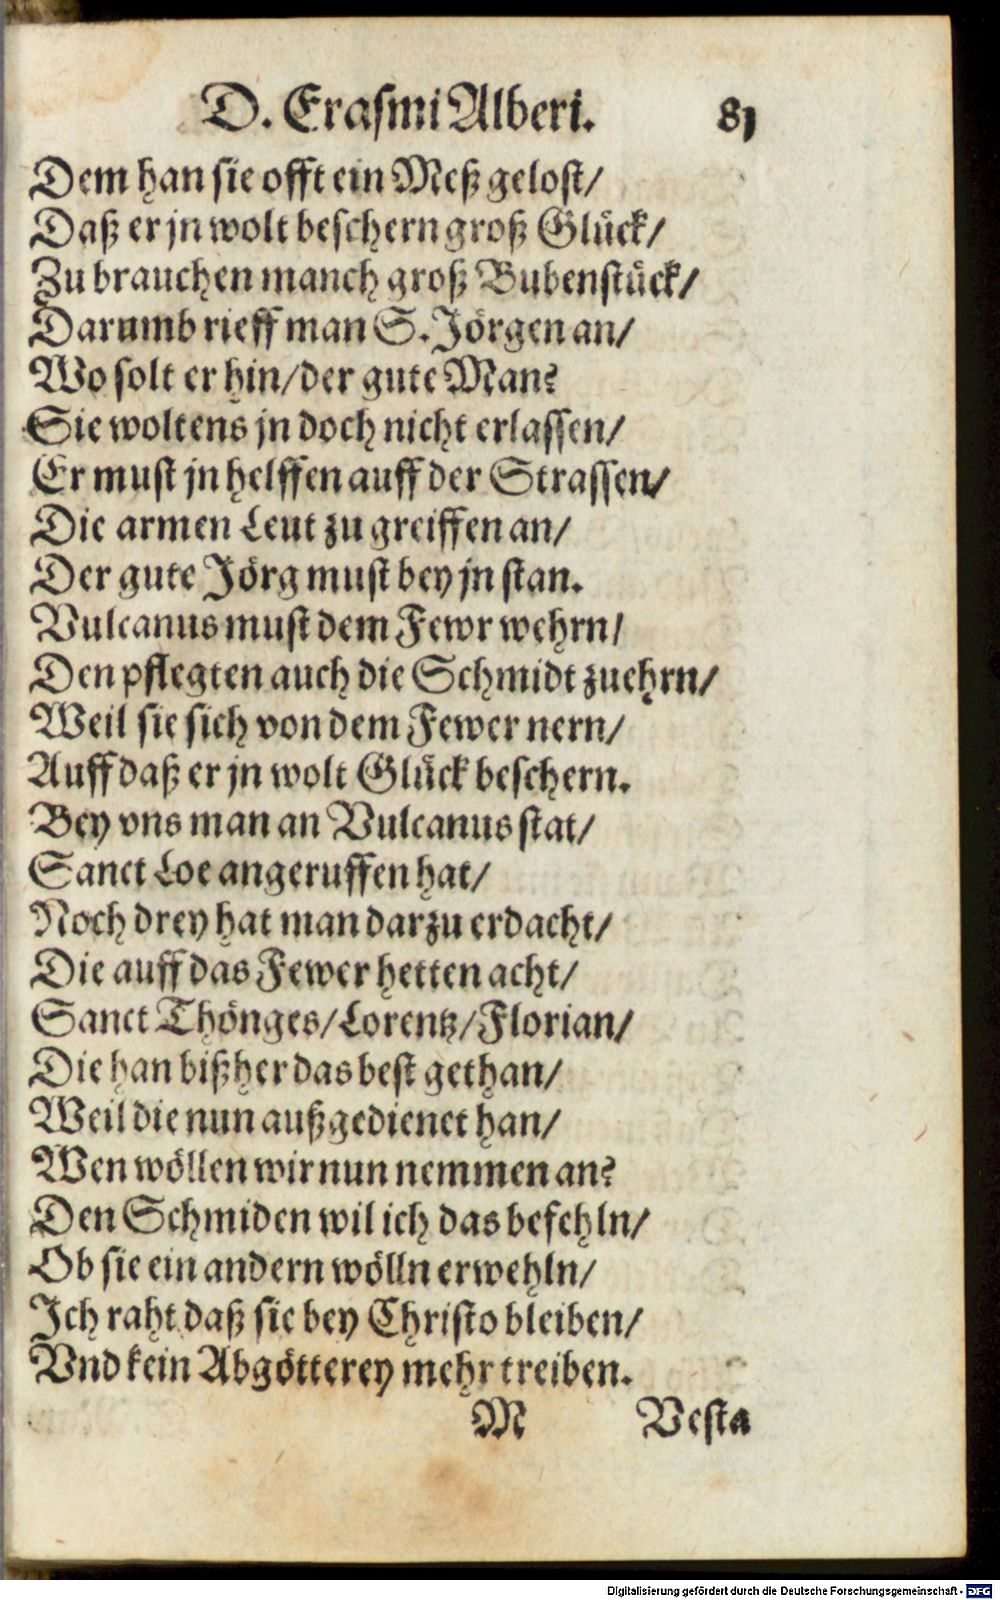 D. Erasmi Alberi. 81
Dem han sie offt ein Meß gelost/
Daß er jn wolt beschern groß Glück/
Zu brauchen manch groß Bubenstück/
Darumb rieff man S. Jörgen an/
Wo solt er hin/der gute Man?
Sie woltens jn doch nicht erlassen/
Er must jn helffen auff der Strassen/
Die armen Leut zu greiffen an/
Der gute Jörg must bey jn stan.
Vulcanus must dem Fewr wehrn/
Den pflegten auch die Schmidt zuehrn/
Weil sie sich von dem Fewer nern/
Auff daß er jn wolt Glück beschern.
Bey vns man an Vulcanus stat/
Sanct Loe angeruffen hat/
Noch drey hat man darzu erdacht/
Die auff das Fewer hetten acht/
Sanct Thönges/Lorentz/Florian/
Die han bißher das best gethan/
Weil die nun außgedienet han/
Wen wöllen wir nun nemmen an?
Den Schmiden wil ich das befehln/
Ob sie ein andern wölln erwehln/
Ich raht daß sie bey Christo bleiben/
Vnd kein Abgötterey mehr treiben.
M Vesta
Digitalisierung gefördert durch die Deutsche Forschungsgemeinschaft - DFG